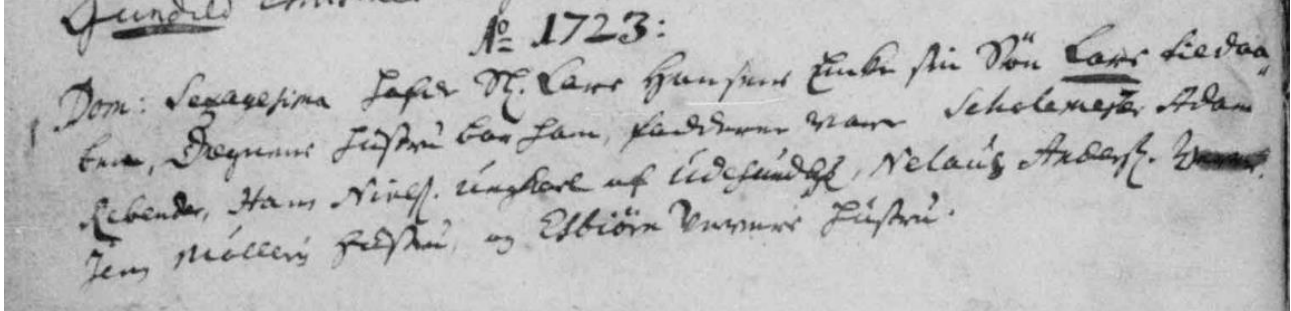 Gundild
Ao 1723:
Dom: Sexagesima hafde Sl. Lars Hansens Encke sin Sön Lars til daa
ben, Degnens Hustru bar ham, fadderne vare Scholemester Adam
Rebender, Hans Niels. ungkarl af Udesundby, Nelaus Anders.
Jens Møllers Hustru, og Esbiörn Vevers Hustru.